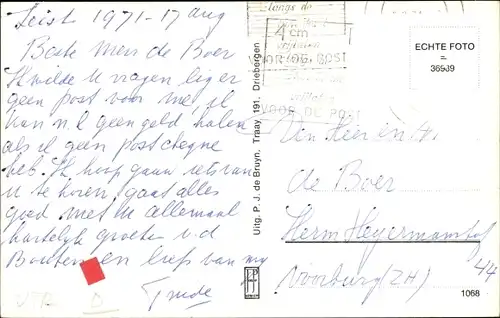 Zeist 1971-17 aug
Beste Mevr de Boer
Ik wilde u vragen lig er
geen post voor mij, ik
kan n.l geen geld halen
als ik geen postcheque
heb. Ik hoop gauw iets van
u te horen, gaat alles
goed met u allemaal
hartelijk groeten v.d
en liefs van my
Trude
Uitg. P. J. de Bruyn, Traay 191, Driebergen
langs de
4 cm
VOOR DE POST
VOOR DE POST
ECHTE FOTO
36939
Den Heer en
de Boer
Herm Heyermanshof
44
Voorburg (ZH)
1068